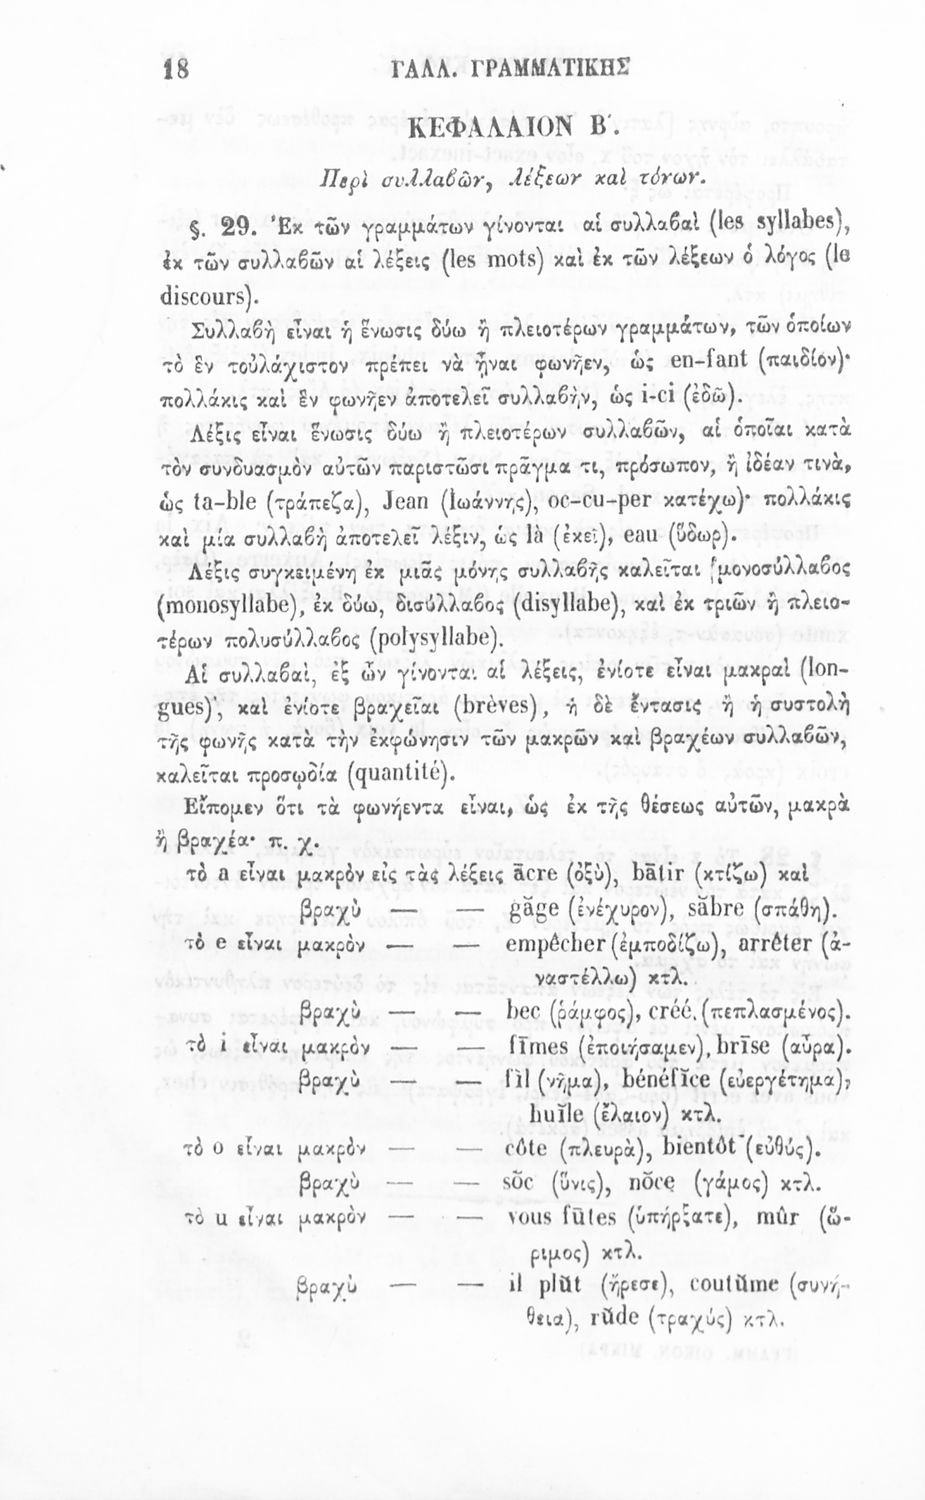 18 ΓΑΛΛ. ΓΡΑΜΜΑΤΙΚΗΣ
ΚΕΦΑΛΑΙΟΝ Β΄.
Περὶ συλλαβῶν, λέξεων καὶ τόνων.
§. 29. Ἐκ τῶν γραμμάτων γίνονται αἱ συλλαβαὶ (les syllabes),
ἐκ τῶν συλλαβῶν αἱ λέξεις (les mots) καὶ ἐκ τῶν λέξεων ὁ λόγος (le
discours).
Συλλαβὴ εἶναι ἡ ἕνωσις δύω ἢ πλειοτέρων γραμμάτων, τῶν ὁποίων
τὸ ἓν τοὐλάχιστον πρέπει νὰ ἦναι φωνῆεν, ὡς en-fant (παιδίον)·
πολλάκις καὶ ἓν φωνῆεν ἀποτελεῖ συλλαβὴν, ὡς i-ci (ἐδῶ).
Λέξις εἶναι ἕνωσις δύω ἢ πλειοτέρων συλλαβῶν, αἱ ὁποῖαι κατὰ
τὸν συνδυασμὸν αὐτῶν παριστῶσι πρᾶγμα τι, πρόσωπον, ἢ ἰδέαν τινὰ,
ὡς ta-ble (τράπεζα), Jean (Ἰωάννης), oc-cu-per κατέχω)· πολλάκις
καὶ μία συλλαβὴ ἀποτελεῖ λέξιν, ὡς là (ἐκεῖ), eau (ὕδωρ).
Λέξις συγκειμένη ἐκ μιᾶς μόνης συλλαβῆς καλεῖται μονοσύλλαβος
(monosyllabe), ἐκ δύω, δισύλλαβος (disyllabe), καὶ ἐκ τριῶν ἢ πλειο-
τέρων πολυσύλλαβος (polysyllabe).
Αἱ συλλαβαὶ, ἐξ ὧν γίνονται αἱ λέξεις, ἐνίοτε εἶναι μακραὶ (lon-
gues), καὶ ἐνίοτε βραχεῖαι (brèves), ἡ δὲ ἔντασις ἢ ἡ συστολὴ
τῆς φωνῆς κατὰ τὴν ἐκφώνησιν τῶν μακρῶν καὶ βραχέων συλλαβῶν,
καλεῖται προσῳδία (quantité).
Εἴπομεν ὅτι τὰ φωνήεντα εἶναι, ὡς ἐκ τῆς θέσεως αὐτῶν, μακρὰ
ἢ βραχέα· π. χ.
τὸ a εἶναι μακρὸν εἰς τὰς λέξεις ācre (ὀξὺ), bātir (κτίζω) καὶ
βραχὺ — — găge (ἐνέχυρον), săbre (σπάθη).
τὸ e εἶναι μακρὸν — — empêcher (ἐμποδίζω), arrêter (ἀ-
ναστέλλω) κτλ.
βραχὺ — — bec (ῥάμφος), créé, (πεπλασμένος).
τὸ i εἶναι μακρὸν — — fīmes (ἐποιήσαμεν), brīse (αὖρα).
βραχὺ — — fĭl (νῆμα), bénéfĭce (εὐεργέτημα),
huĭle (ἔλαιον) κτλ.
τὸ o εἶναι μακρὸν — — côte (πλευρὰ), bientôt (εὐθύς).
βραχὺ — — sŏc (ὕνις), nŏce (γάμος) κτλ.
τὸ u εἶναι μακρὸν — — vous fūtes (ὑπήρξατε), mûr (ὥ-
ριμος) κτλ.
βραχὺ — — il plŭt (ἤρεσε), coutŭme (συνή-
θεια), rŭde (τραχύς) κτλ.